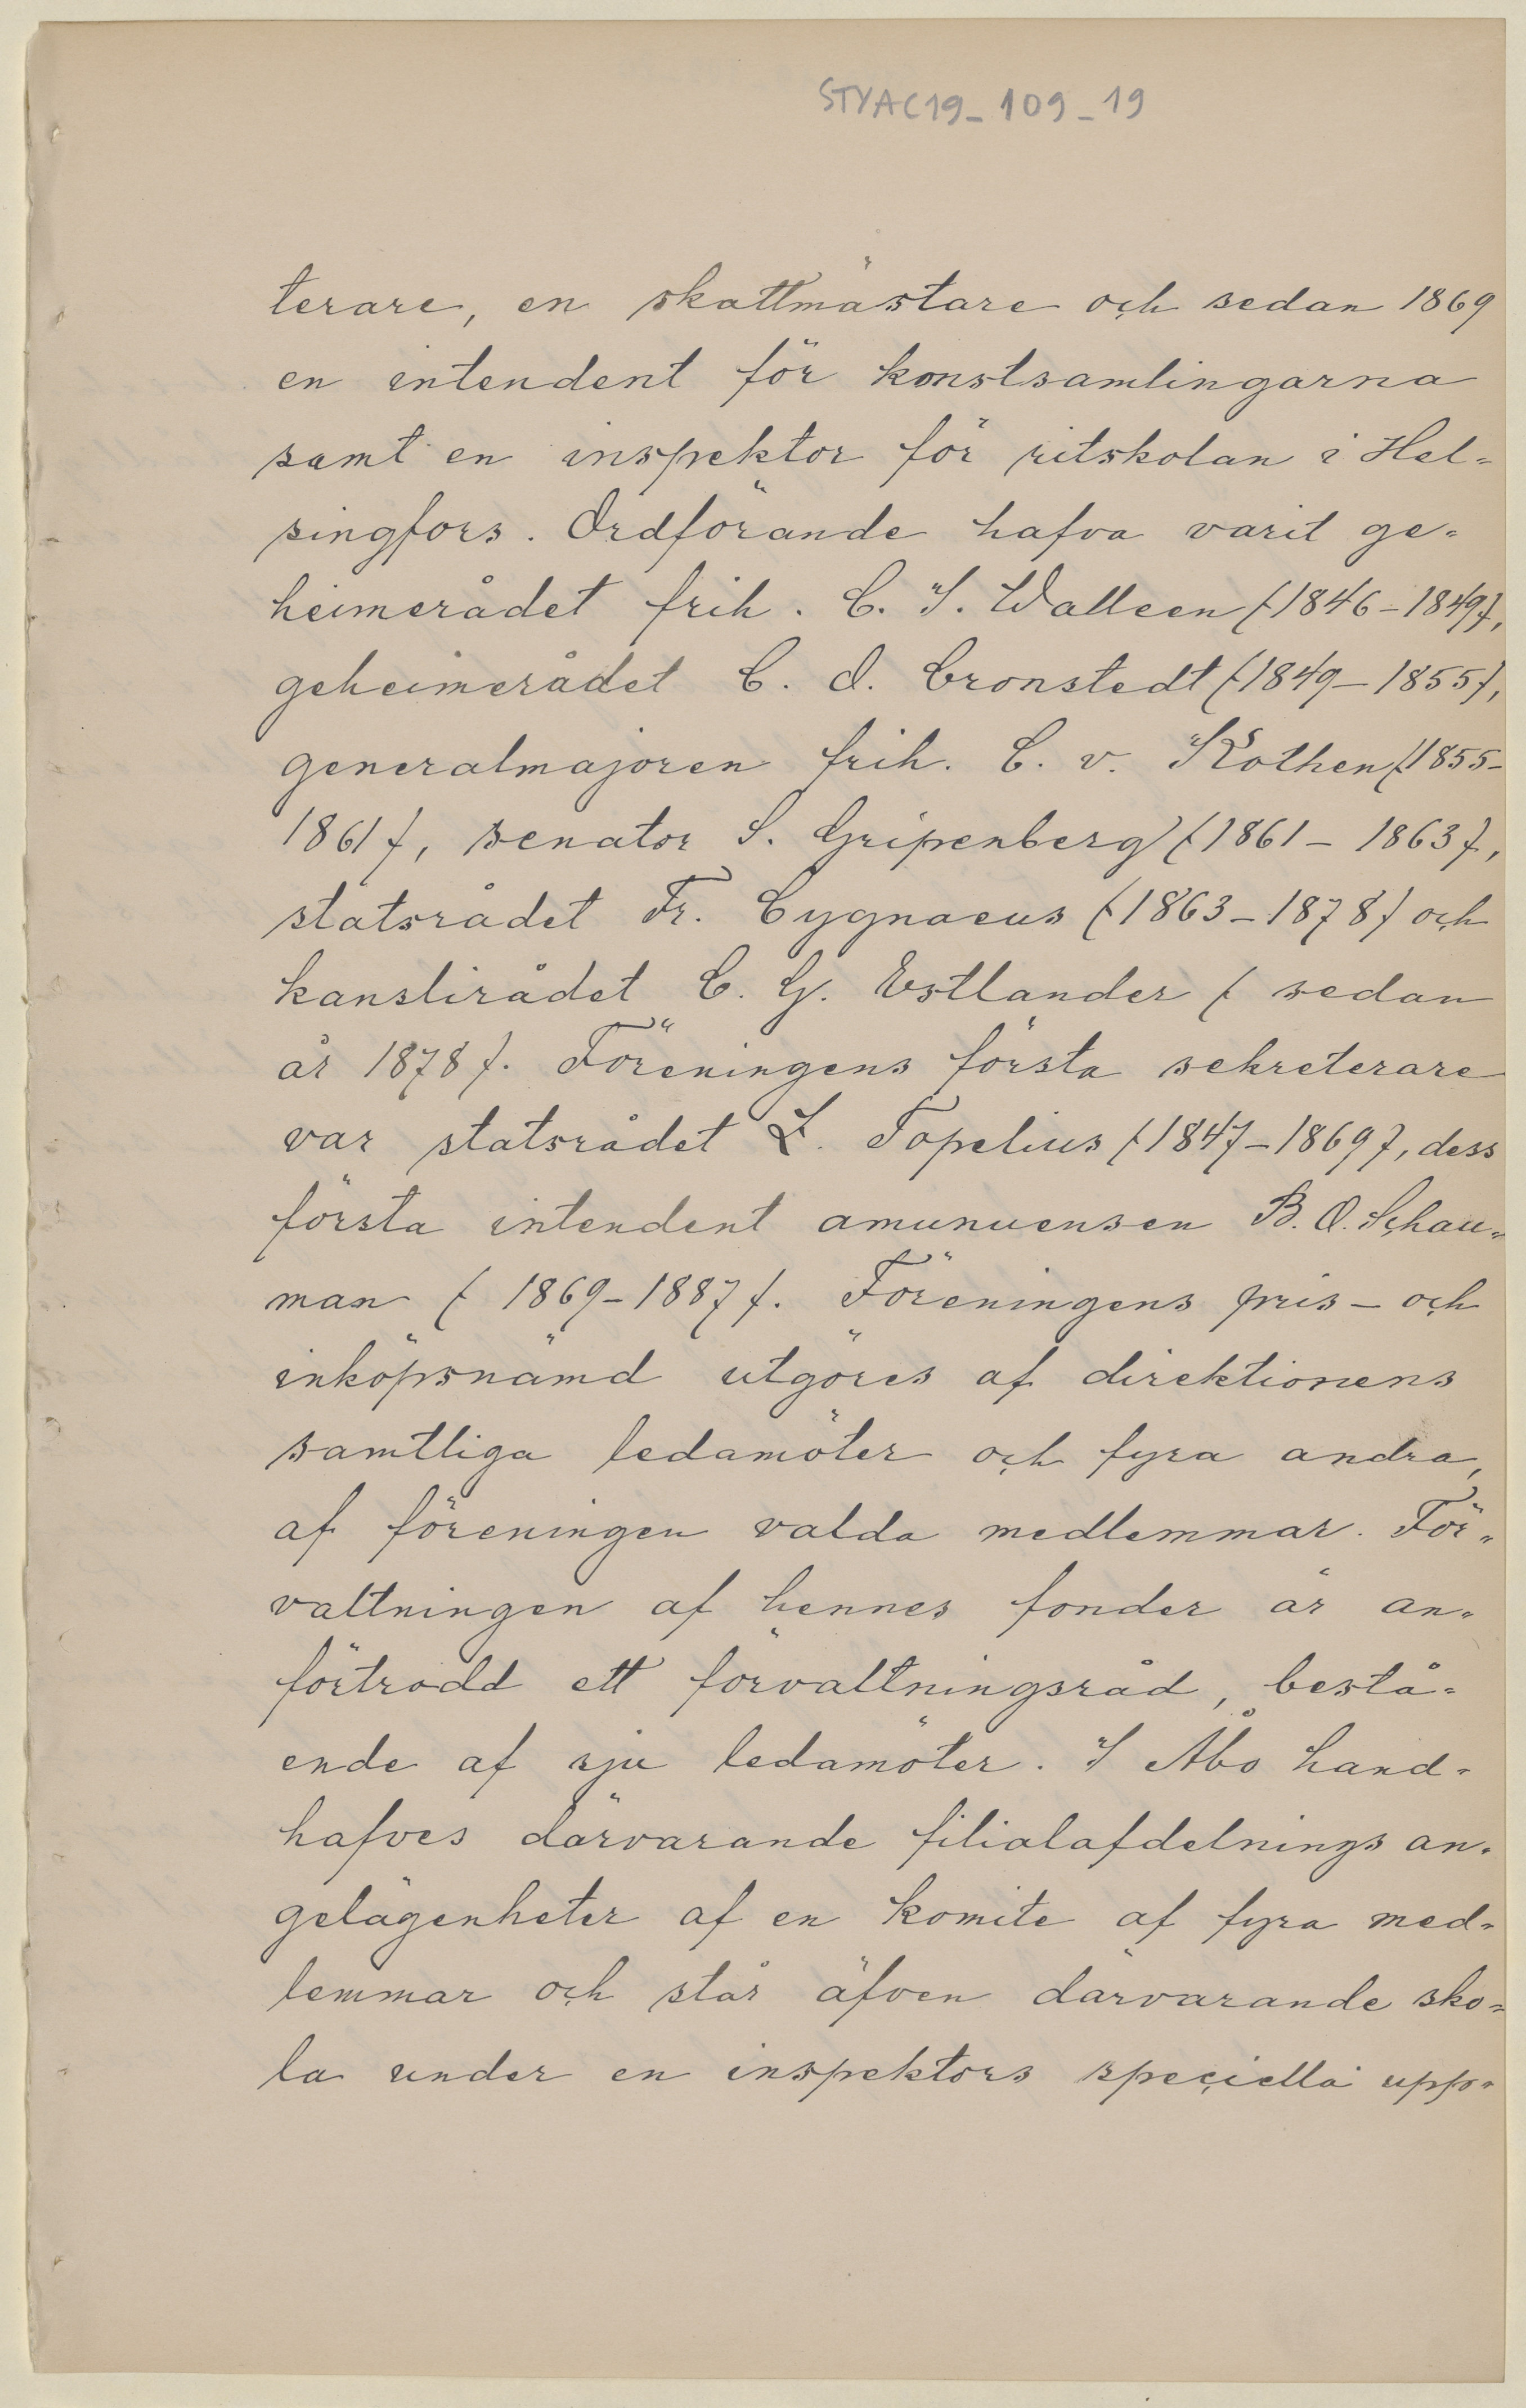 STYAC19_109_19
terare, en skattmästare och sedan 1869
en intendent för konstsamlingarna
samt en inspektor för ritskolan i Hel=
singfors. Ordförande hafva varit ge=
heimerådet frih. C. J. Walleen (1846-1849),
geheimerådet C. O. Cronstedt (1849-1855),
generalmajoren frih. C. v. Kothen (1855-
1861), senator S. Gripenberg (1861-1863),
statsrådet Fr. Cygnaeus (1863-1878) och
kanslirådet C. G. Estlander (sedan
år 1878). Föreningens första sekreterare
var statsrådet Z. Topelius (1847-1869), dess
första intendent amunuensen B. O. Schau=
man (1869-1887). Föreningens pris- och
inköpsnämd utgöres af direktionens
samtliga ledamöter och fyra andra,
af föreningen valda medlemmar. För=
valtningen af hennes fonder är an=
förtrodd ett förvaltningsråd, bestå=
ende af sju ledamöter. I Åbo hand=
hafves därvarande filialafdelnings an=
gelägenheter af en komite af fyra med=
lemmar och står äfven därvarande sko=
la under en inspektors speciella upp=